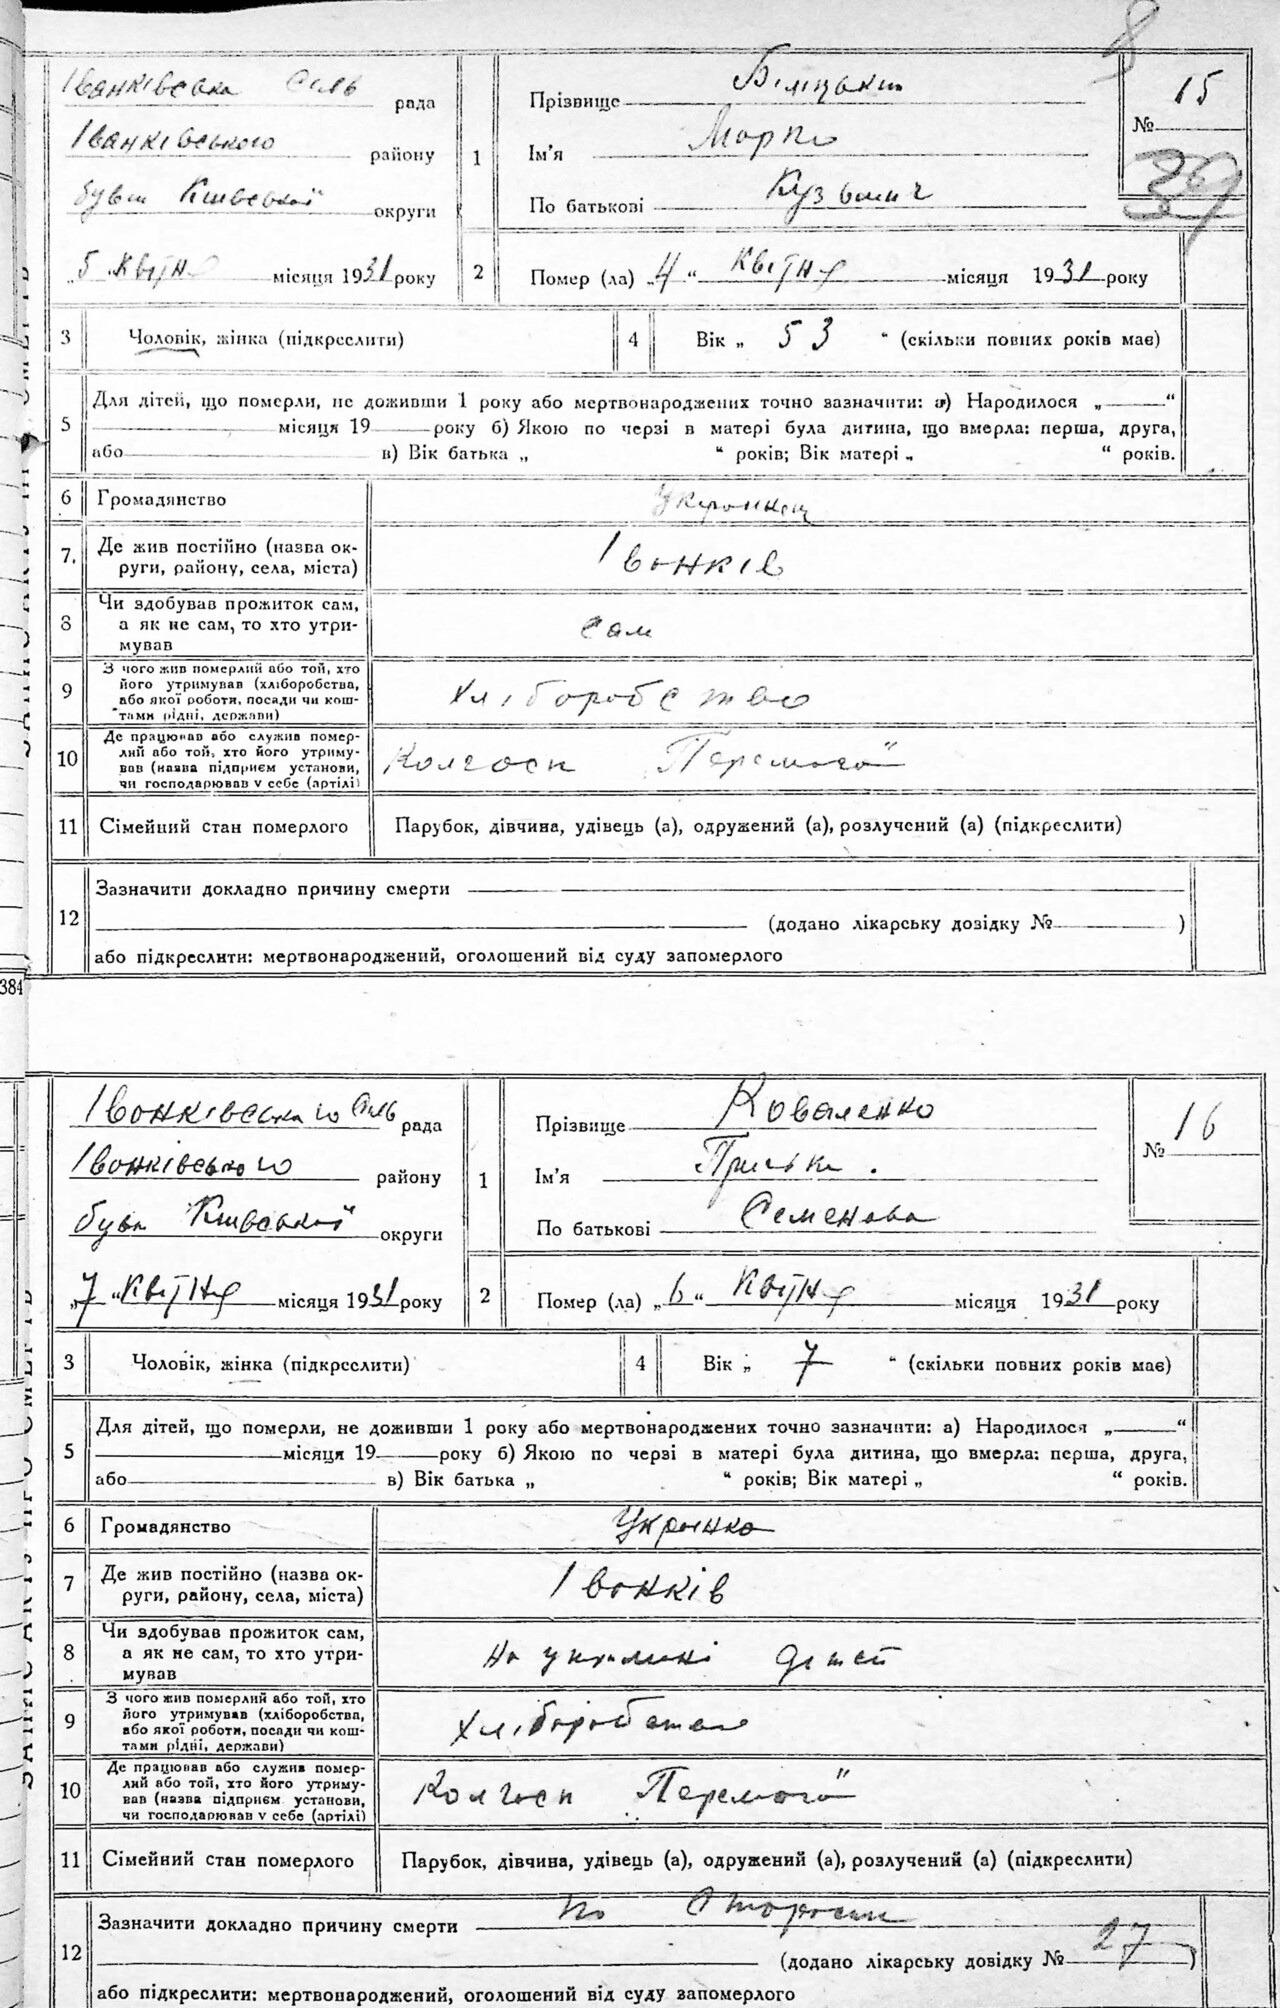 8
Іванківська Сіль рада
Іванківського району
бувш Київської округи
„5 квітня місяця 1931 року
1
Прізвище Біліцький
Ім'я Марко
По батькові Кузьмич
№ 15
39
2 Помер (ла) „4“ квітня місяця 1931 року
3 Чоловік, жінка (підкреслити)
4 Вік „ 53 “ (скільки повних років має)
5
Для дітей, що померли, не доживши 1 року або мертвонароджених точно зазначити: а) Народилося „ “
місяця 19 року б) Якою по черзі в матері була дитина, що вмерла: перша, друга,
або в) Вік батька „ “ років; Вік матері „ “ років.
6 Громадянство Українець
7. Де жив постійно (назва ок-
руги, району, села, міста) Іванків
8 Чи здобував прожиток сам,
а як не сам, то хто утри-
мував сам
9 З чого жив померлий або той, хто
його утримував (хліборобства,
або якої роботи, посади чи кош-
тами рідні, держави) Хліборобство
10 Де працював або служив помер-
лий або той, хто його утриму-
вав (назва підприєм установи,
чи господарював у себе (артілі) Колгосп Перемога"
11 Сімейний стан померлого Парубок, дівчина, удівець (а), одружений (а), розлучений (а) (підкреслити)
12
Зазначити докладно причину смерти
(додано лікарську довідку № )
або підкреслити: мертвонароджений, оголошений від суду запомерлого
384
Іванківська Сіль рада
Іванківського району
бувш Київської округи
„7“ квітня місяця 1931 року
1
Прізвище Коваленко
Ім'я Приська
По батькові Семенова
№ 16
2 Помер (ла) „6“ квітня місяця 1931 року
3 Чоловік, жінка (підкреслити)
4 Вік „ 7 “ (скільки повних років має)
5
Для дітей, що померли, не доживши 1 року або мертвонароджених точно зазначити: а) Народилося „ “
місяця 19 року б) Якою по черзі в матері була дитина, що вмерла: перша, друга,
або в) Вік батька „ “ років; Вік матері „ “ років.
6 Громадянство Українка
7 Де жив постійно (назва ок-
руги, району, села, міста) Іванків
8 Чи здобував прожиток сам,
а як не сам, то хто утри-
мував на дітей
9 З чого жив померлий або той, хто
його утримував (хліборобства,
або якої роботи, посади чи кош-
тами рідні, держави) Хліборобство
10 Де працював або служив помер-
лий або той, хто його утриму-
вав (назва підприєм установи,
чи господарював у себе (артілі) Колгосп Перемога"
11 Сімейний стан померлого Парубок, дівчина, удівець (а), одружений (а), розлучений (а) (підкреслити)
12
Зазначити докладно причину смерти по
(додано лікарську довідку № 27 )
або підкреслити: мертвонароджений, оголошений від суду запомерлого